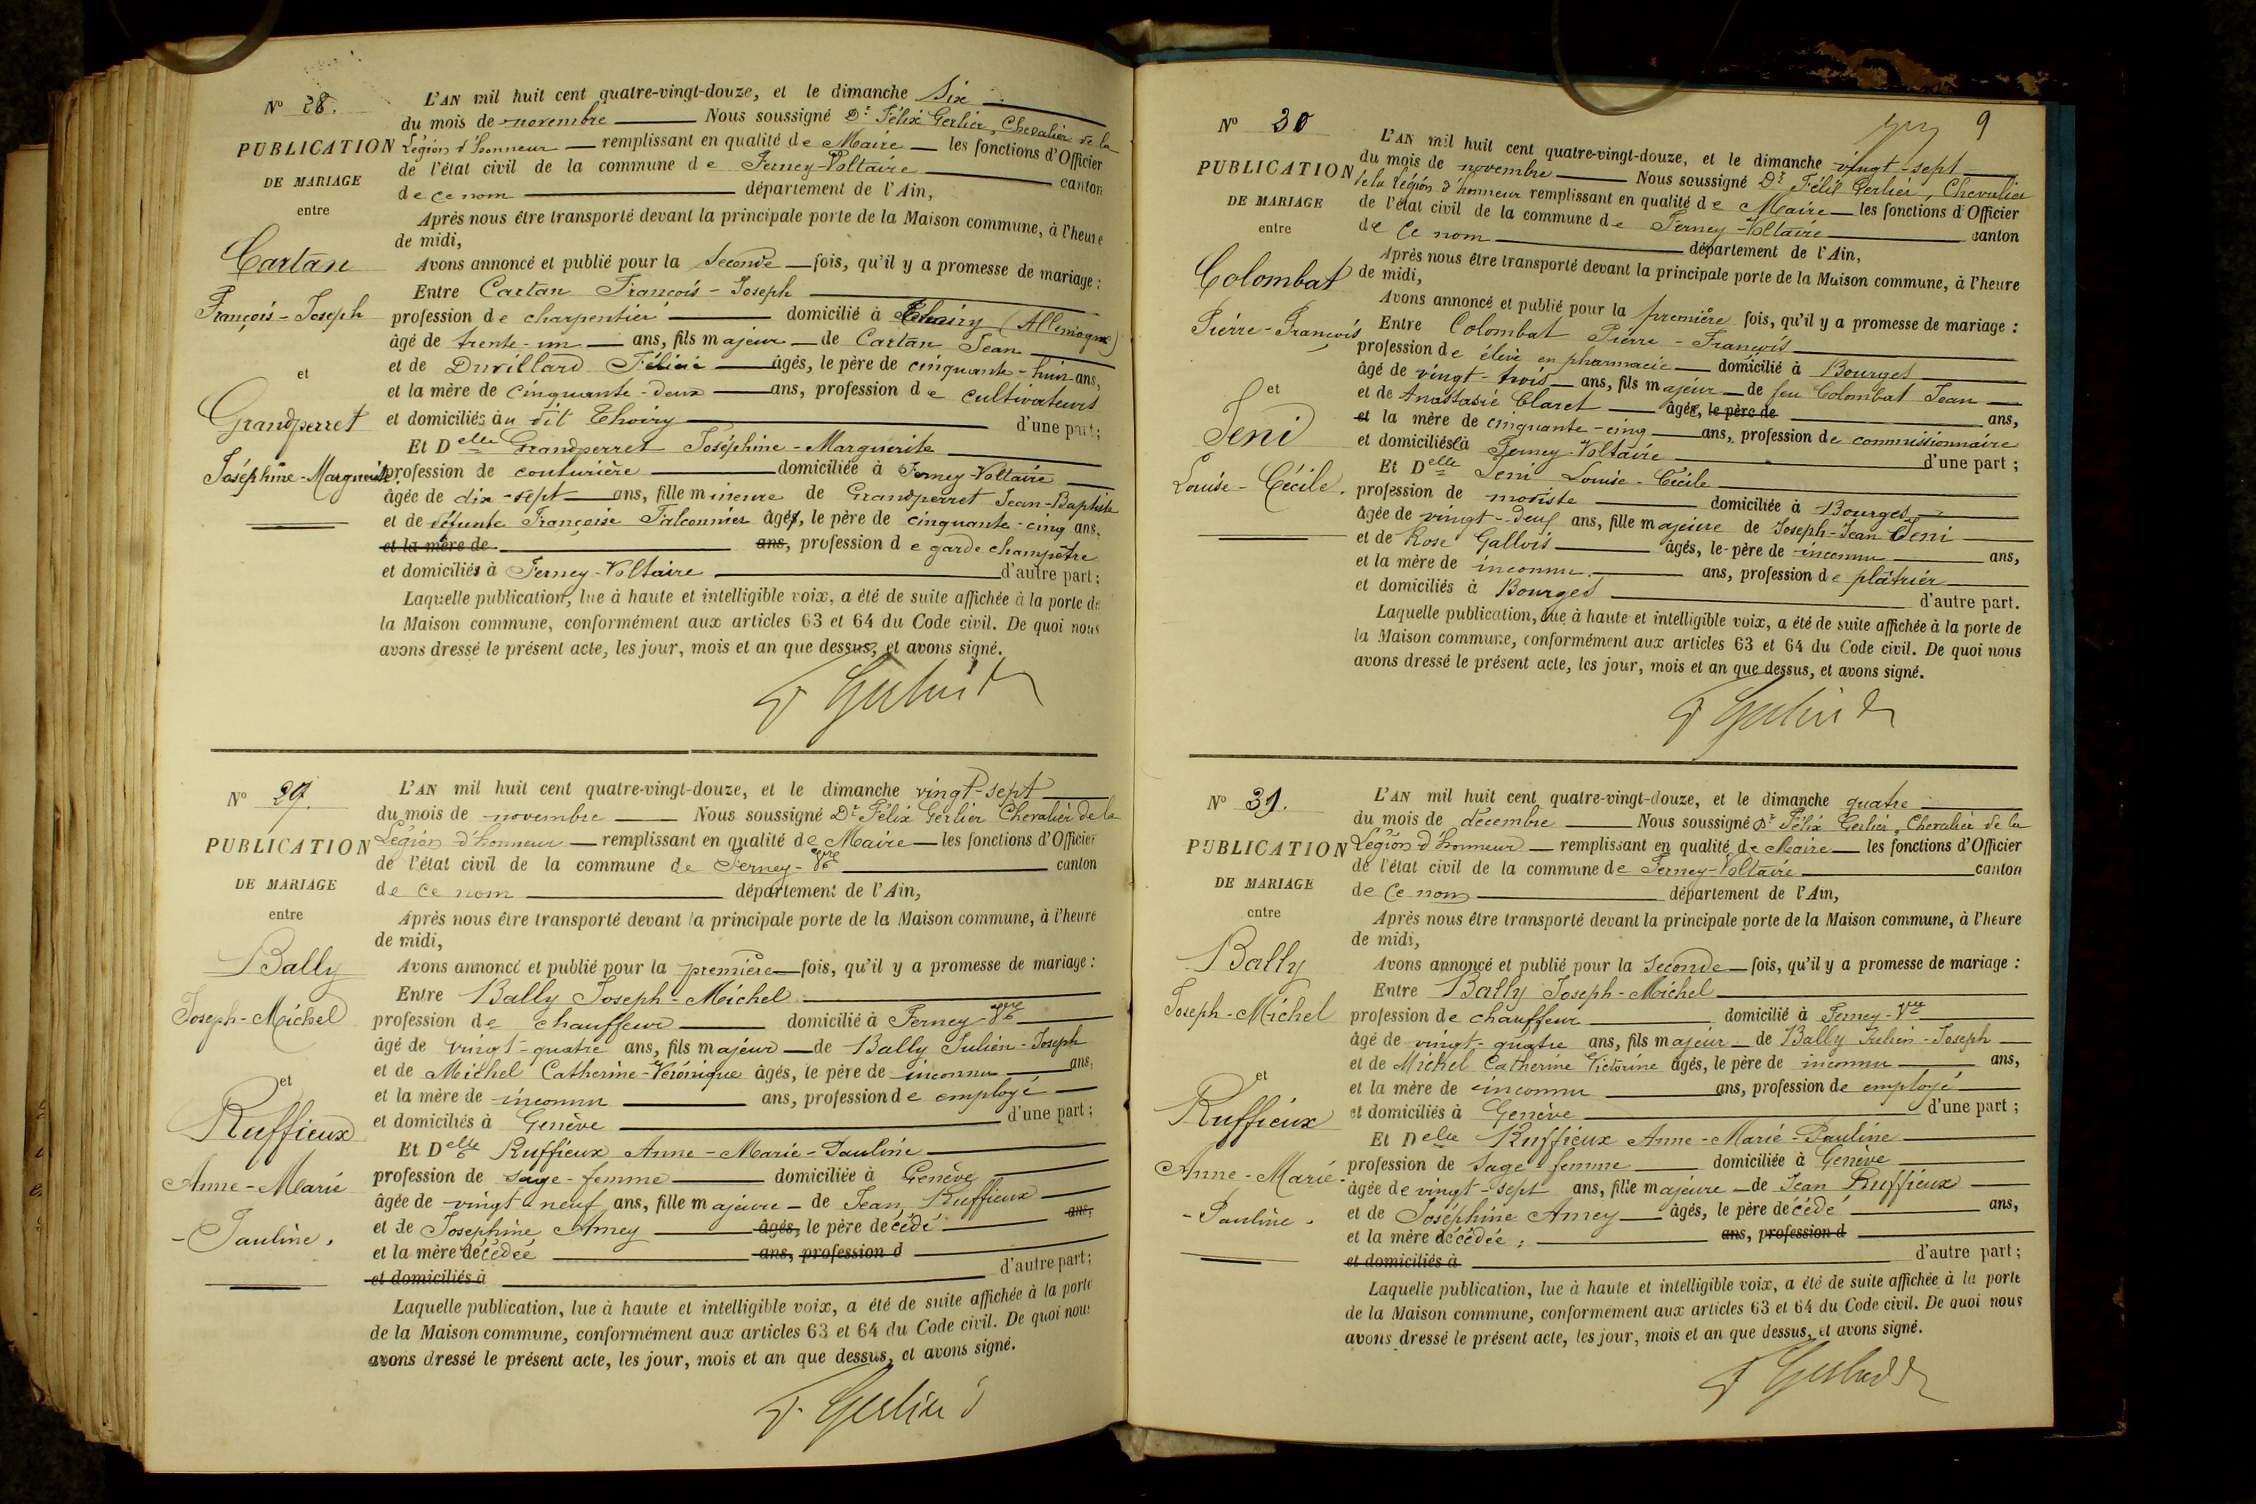 N° 28.
PUBLICATION
DE MARIAGE
entre
Cartan
François-Joseph
et
Grandperret
Joséphine-Marguerite
L'AN mil huit cent quatre-vingt-douze, et le dimanche six
du mois de novembre Nous soussigné Dr Félix Gerlier, Chevalier de la
Légion d'honneur remplissant en qualité de Maire les fonctions d'Officier
de l'état civil de la commune de Ferney-Voltaire canton
de ce nom département de l'Ain,
Après nous être transporté devant la principale porte de la Maison commune, à l'heure
de midi,
Avons annoncé et publié pour la seconde fois, qu'il y a promesse de mariage :
Entre Cartan François-Joseph
profession de charpentier domicilié à Thoiry (Allemogne)
âgé de trente-un ans, fils majeur de Cartan Jean
et de Duvillard Félicie âgés, le père de cinquante-huit ans,
et la mère de cinquante-deux ans, profession de cultivateurs
et domiciliés au dit Thoiry d'une part ;
Et Delle Grandperret Joséphine-Marguerite
profession de couturière domiciliée à Ferney-Voltaire
âgée de dix-sept ans, fille mineure de Grandperret Jean-Baptiste
et de défunte Françoise Falconnier âgés, le père de cinquante-cinq ans,
et la mère de ans, profession de garde champêtre
et domiciliés à Ferney-Voltaire d'autre part ;
Laquelle publication, lue à haute et intelligible voix, a été de suite affichée à la porte de
la Maison commune, conformément aux articles 63 et 64 du Code civil. De quoi nous
avons dressé le présent acte, les jour, mois et an que dessus, et avons signé.
F Gerlier
N° 29.
PUBLICATION
DE MARIAGE
entre
Bally
Joseph-Michel
et
Ruffieux
Anne-Marie
-Pauline.
L'AN mil huit cent quatre-vingt-douze, et le dimanche vingt-sept
du mois de novembre Nous soussigné Dr Félix Gerlier Chevalier de la
Légion d'honneur remplissant en qualité de Maire les fonctions d'Officier
de l'état civil de la commune de Ferney-Vre canton
de ce nom département de l'Ain,
Après nous être transporté devant la principale porte de la Maison commune, à l'heure
de midi,
Avons annoncé et publié pour la première fois, qu'il y a promesse de mariage :
Entre Bally Joseph-Michel
profession de chauffeur domicilié à Ferney-Vre
âgé de vingt-quatre ans, fils majeur de Bally Julien-Joseph
et de Michel Catherine-Véronique âgés, le père de inconnu ans,
et la mère de inconnu ans, profession de employé
et domiciliés à Genève d'une part ;
Et Delle Ruffieux Anne-Marie-Pauline
profession de sage-femme domiciliée à Genève
âgée de vingt neuf ans, fille majeure de Jean Ruffieux
et de Joséphine Amey âgés, le père décédé ans,
et la mère décédée ans, profession d
et domiciliés à d'autre part ;
Laquelle publication, lue à haute et intelligible voix, a été de suite affichée à la porte
de la Maison commune, conformément aux articles 63 et 64 du Code civil. De quoi nous
avons dressé le présent acte, les jour, mois et an que dessus, et avons signé.
F. Gerlier
9
N° 30
PUBLICATION
DE MARIAGE
entre
Colombat
Pierre-François
et
Jeni
Louise-Cécile.
L'AN mil huit cent quatre-vingt-douze, et le dimanche vingt-sept
du mois de novembre Nous soussigné Dr Félix Gerlier, Chevalier
de la Légion d'honneur remplissant en qualité de Maire les fonctions d'Officier
de l'état civil de la commune de Ferney-Voltaire canton
de ce nom département de l'Ain,
Après nous être transporté devant la principale porte de la Maison commune, à l'heure
de midi,
Avons annoncé et publié pour la première fois, qu'il y a promesse de mariage :
Entre Colombat Pierre-François
profession de élève en pharmacie domicilié à Bourges
âgé de vingt-trois ans, fils majeur de feu Colombat Jean
et de Anastasie Claret âgée, le père de ans,
et la mère de cinquante-cinq ans, profession de commissionnaire
et domiciliés à Ferney-Voltaire d'une part ;
Et Delle Jeni Louise-Cécile
profession de modiste domiciliée à Bourges
âgée de vingt-deux ans, fille majeure de Joseph-Jean Jeni
et de Rose Gallois âgés, le père de inconnu ans,
et la mère de inconnu ans, profession de plâtrier
et domiciliés à Bourges d'autre part.
Laquelle publication, lue à haute et intelligible voix, a été de suite affichée à la porte de
la Maison commune, conformément aux articles 63 et 64 du Code civil. De quoi nous
avons dressé le présent acte, les jour, mois et an que dessus, et avons signé.
F Gerlier
N° 31.
PUBLICATION
DE MARIAGE
entre
Bally
Joseph-Michel
et
Ruffieux
Anne-Marie-
-Pauline.
L'AN mil huit cent quatre-vingt-douze, et le dimanche quatre
du mois de décembre Nous soussigné Dr Félix Gerlier, Chevalier de la
Légion d'honneur remplissant en qualité de Maire les fonctions d'Officier
de l'état civil de la commune de Ferney-Voltaire canton
de ce nom département de l'Ain,
Après nous être transporté devant la principale porte de la Maison commune, à l'heure
de midi,
Avons annoncé et publié pour la seconde fois, qu'il y a promesse de mariage :
Entre Bally Joseph-Michel
profession de chauffeur domicilié à Ferney-Vre
âgé de vingt-quatre ans, fils majeur de Bally Julien-Joseph
et de Michel Catherine Victorine âgés, le père de inconnu ans,
et la mère de inconnu ans, profession de employé
et domiciliés à Genève d'une part ;
Et Delle Ruffieux Anne-Marie-Pauline
profession de sage-femme domiciliée à Genève
âgée de vingt-sept ans, fille majeure de Jean Ruffieux
et de Joséphine Amey âgés, le père décédé ans,
et la mère décédée ; ans, profession d
et domiciliés à d'autre part ;
Laquelle publication, lue à haute et intelligible voix, a été de suite affichée à la porte
de la Maison commune, conformément aux articles 63 et 64 du Code civil. De quoi nous
avons dressé le présent acte, les jour, mois et an que dessus, et avons signé.
F Gerlier